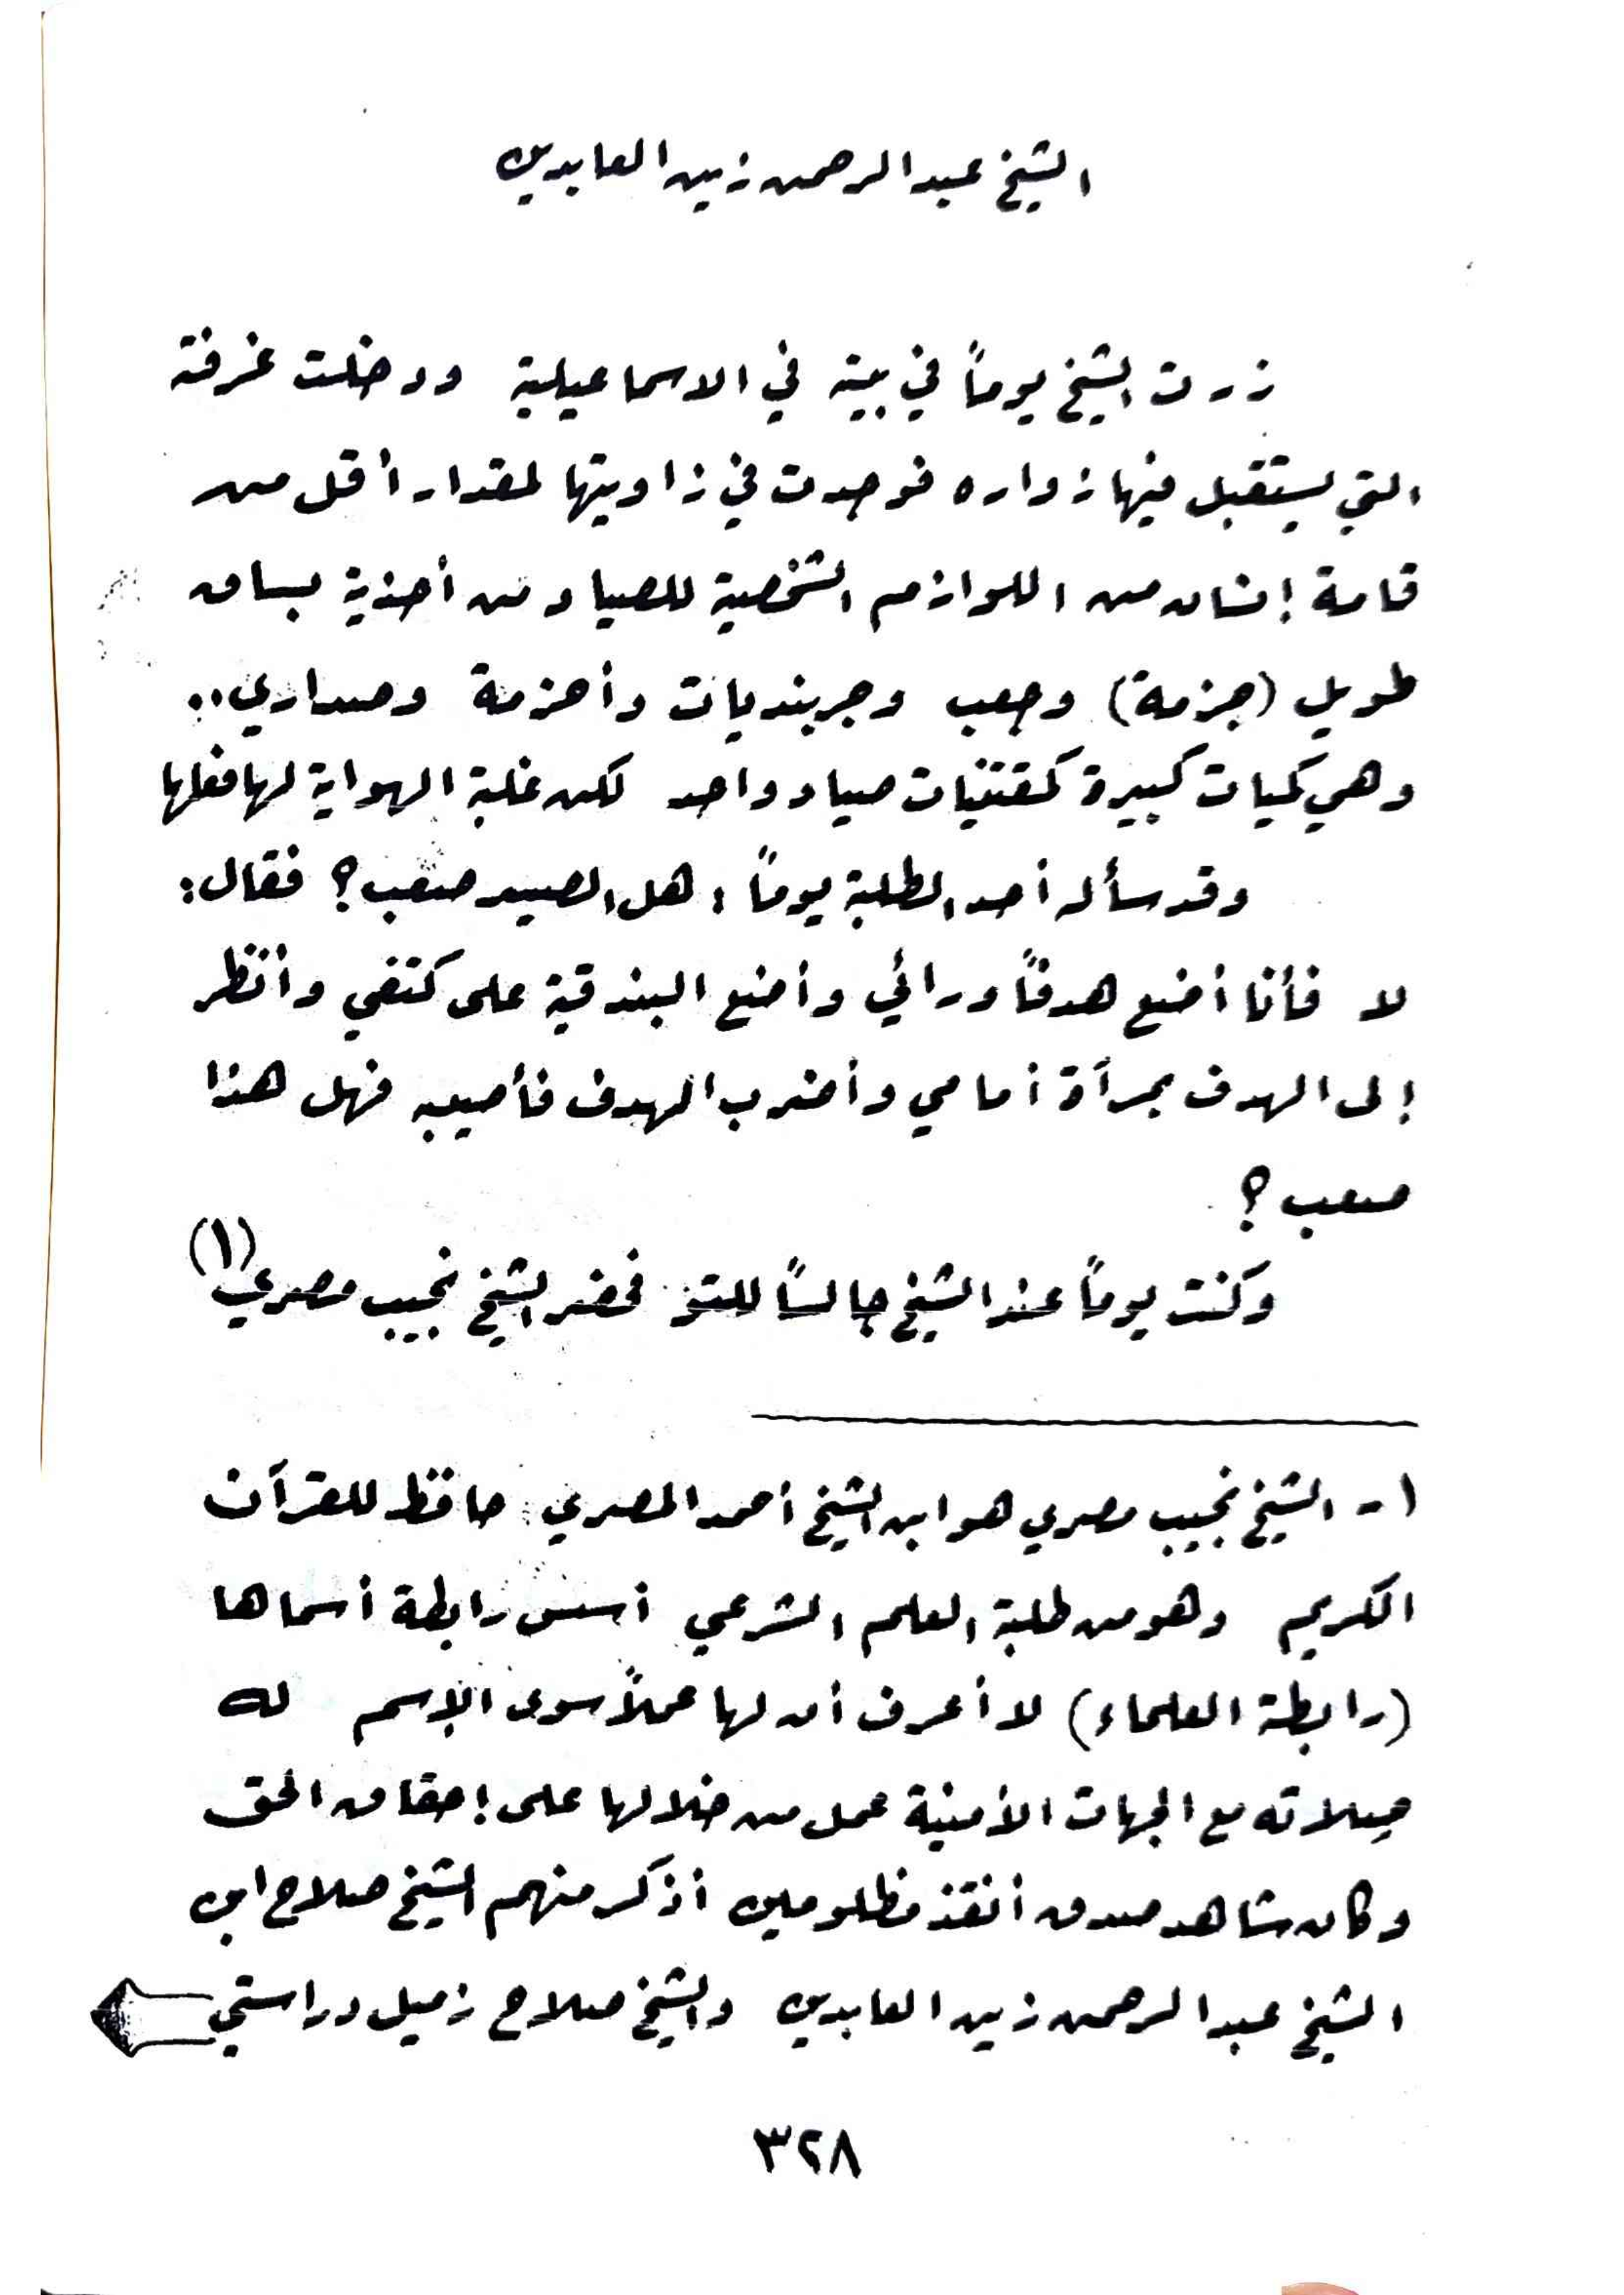 الشيخ عبد الرحمن زين العابدين
زرت الشيخ يوماً في بيته في الاسماعيلية ودخلت غرفته
التي يستقبل فيها زواره فوجدت في زاويتها لمقدار أقل من
قامة إنسان من اللوازم الشخصية للصياد من أحذية بساق
طويل (جزمة) وجعب وجربنديات وأحزمة وصداري..
وهي كميات كبيرة كمقتنيات صياد واحد لكن غلبة الهواية لها فعلها
وقد سأله أحد الطلبة يوماً : هل الصيد صعب؟ فقال:
لا فأنا أضع هدفاً ورائي وأضع البندقية على كتفي وأنظر
إلى الهدف بمرآة أمامي وأضرب الهدف فأصيبه فهل هذا
صعب؟
وكنت يوماً عند الشيخ جالساً للتو فحضر الشيخ نجيب مصري (١)
١ - الشيخ نجيب مصري هو ابن الشيخ أحمد المصري حافظ للقرآن
الكريم وهو من طلبة العلم الشرعي أسس رابطة أسماها
(رابطة العلماء) لا أعرف أن لها عملاً سوى الإسم له
صلاته مع الجهات الأمنية عمل من خلالها على إحقاق الحق
وكان شاهد صدق أنقذ مظلومين أذكر منهم الشيخ صلاح ابن
الشيخ عبد الرحمن زين العابدين والشيخ صلاح زميل دراستي
٣٢٨